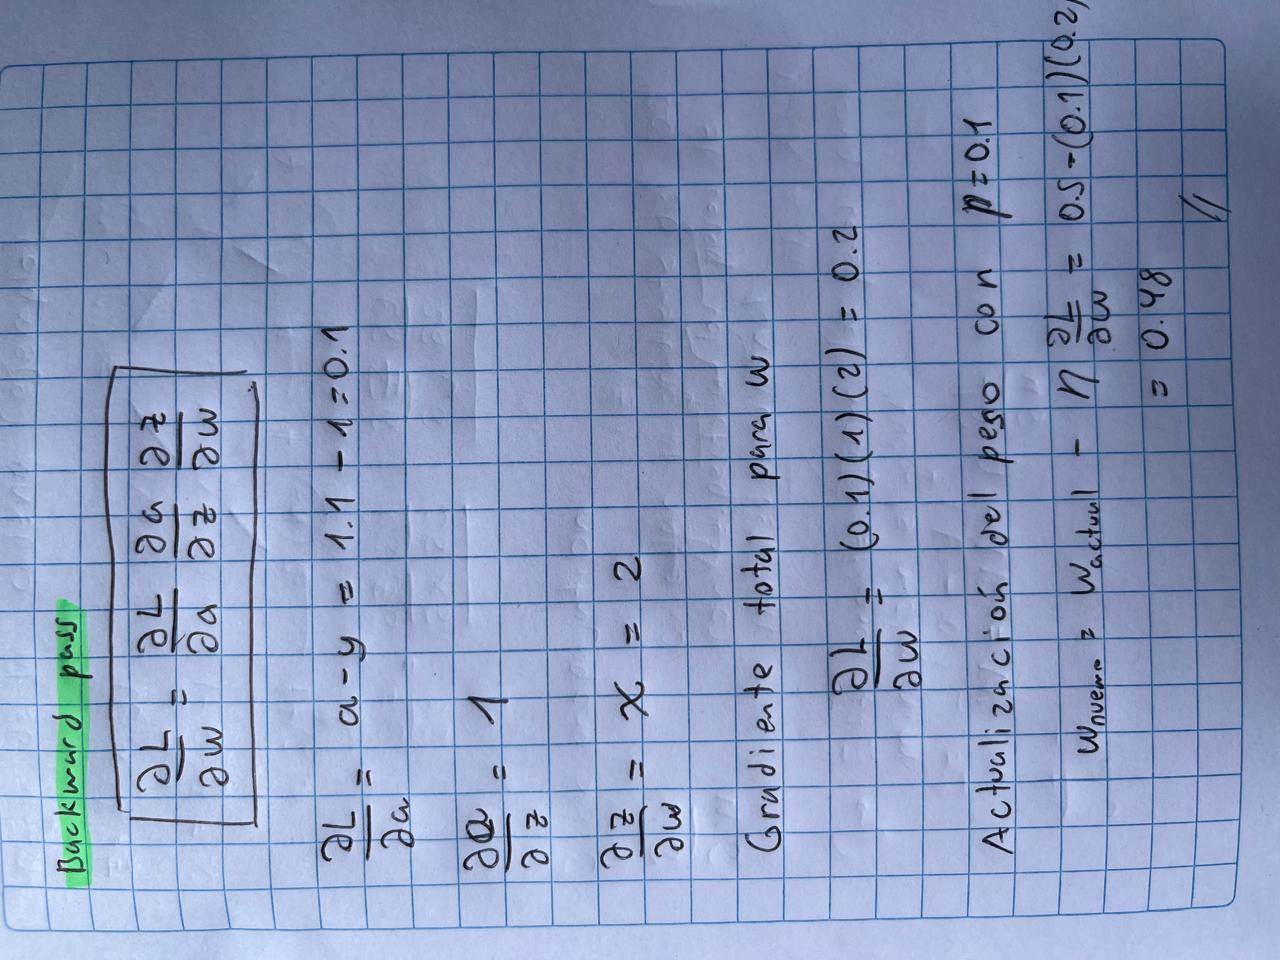 Backward pass
∂L/∂w = ∂L/∂a ∂a/∂z ∂z/∂w
∂L/∂a = a - y = 1.1 - 1 = 0.1
∂a/∂z = 1
∂z/∂w = x = 2
Gradiente total para w
∂L/∂w = (0.1)(1)(2) = 0.2
Actualización del peso con p = 0.1
w nuevo = w actual - η ∂L/∂w = 0.5 - (0.1)(0.2)
= 0.48 //